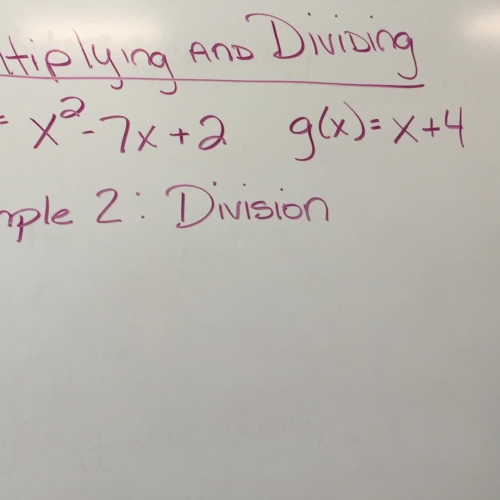 ltiplying AND DiviDing
= x²-7x+2 g(x)=x+4
mple 2: Division